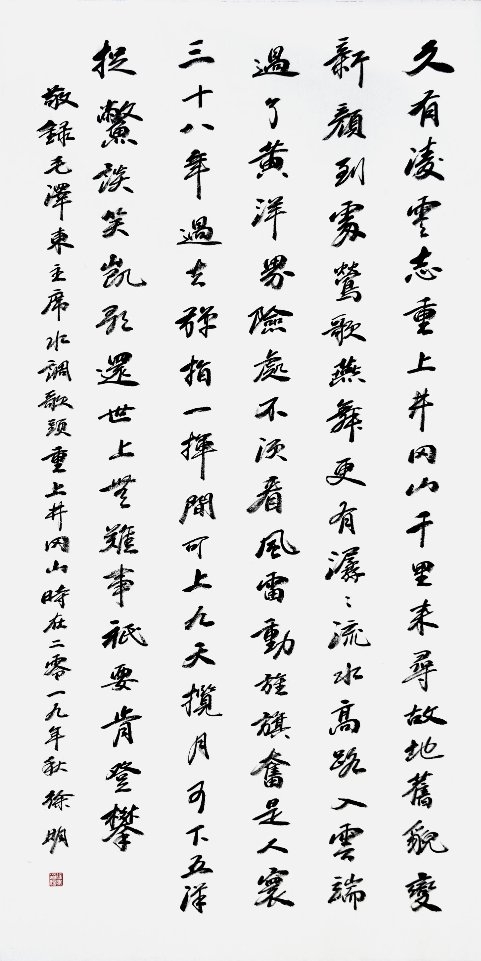 久有凌雲志重上井冈山千里来尋故地舊貌變
新顏到處鶯歌燕舞更有潺〻流水高路入雲端
過了黄洋界險處不須看風雷動旌旗奮是人寰
三十八年過去彈指一揮間可上九天攬月可下五洋
捉鱉談笑凱歌還世上無難事祇要肯登攀
敬録毛澤東主席水調歌頭重上井冈山時在二零一九年秋徐明